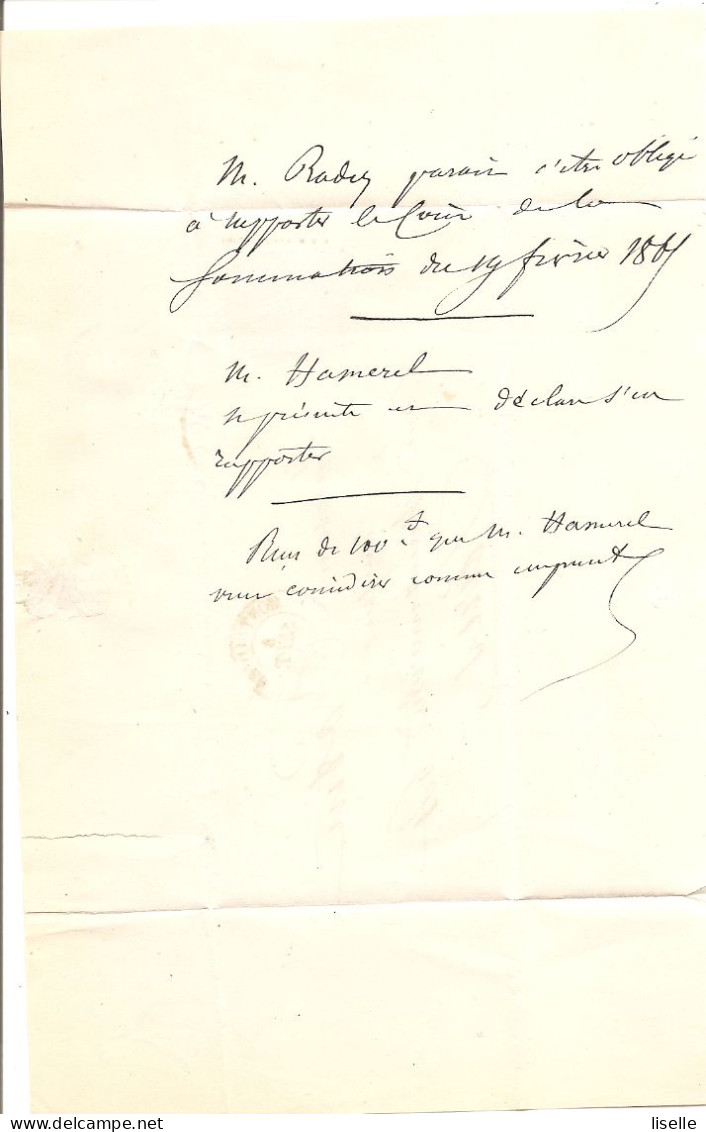 M. Radez parait s'être obligé
à rapporter le Coût de la
Sommation du 19 février 1861
M. Hamerel
représente et déclare s'en
rapporter
de 100 f que M. Hamerel
veut considérer comme emprunt
liselle